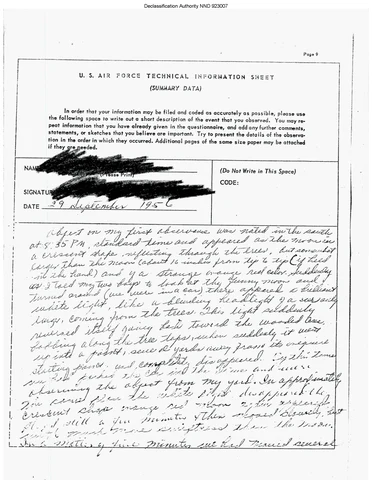 Declassification Authority NND 923007
Page 9
U. S. AIR FORCE TECHNICAL INFORMATION SHEET
(SUMMARY DATA)
In order that your information may be filed and coded as accurately as possible, please use
the following space to write out a short description of the event that you observed. You may re-
peat information that you have already given in the questionnaire, and add any further comments,
statements, or sketches that you believe are important. Try to present the details of the observa-
tion in the order in which they occurred. Additional pages of the same size paper may be attached
if they are needed.
NAME
(Please Print)
SIGNATURE
(Do Not Write in This Space)
CODE:
DATE 29 September 1956
Object on my first observance was noted in the south
at 8:35 P.M. standard time and appeared as the moon in
a crescent shape, reflecting through the trees, but somewhat
larger than the moon (about 10 inches from tip to tip if held
in the hand) and of a strange orange red color. Suddenly
as I told my two boys to look at the funny moon and
turned around (we were in a car) there appeared a brilliant
white light, like a blinding headlight
large, coming from the trees. This light suddenly
reversed itself going back toward the wooded area
bobbing along the tree tops, when suddenly it went
up into a point, several yards away from its original
starting point, and completely disappeared. By this time
we had parked the car and the boys and I were
observing the object from my yard. In approximately
five seconds when the white light disappeared the
crescent shape orange red moon
still a few minutes then moved
much more
In a matter of five minutes we had turned several